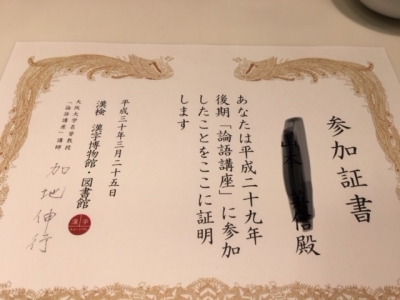 参加証書
殿
あなたは平成二十九年
後期「論語講座」に参加
したことをここに証明
します
平成三十年三月二十五日
漢検 漢字博物館・図書館
大阪大学名誉教授
「論語講座」講師
加地伸行
漢字